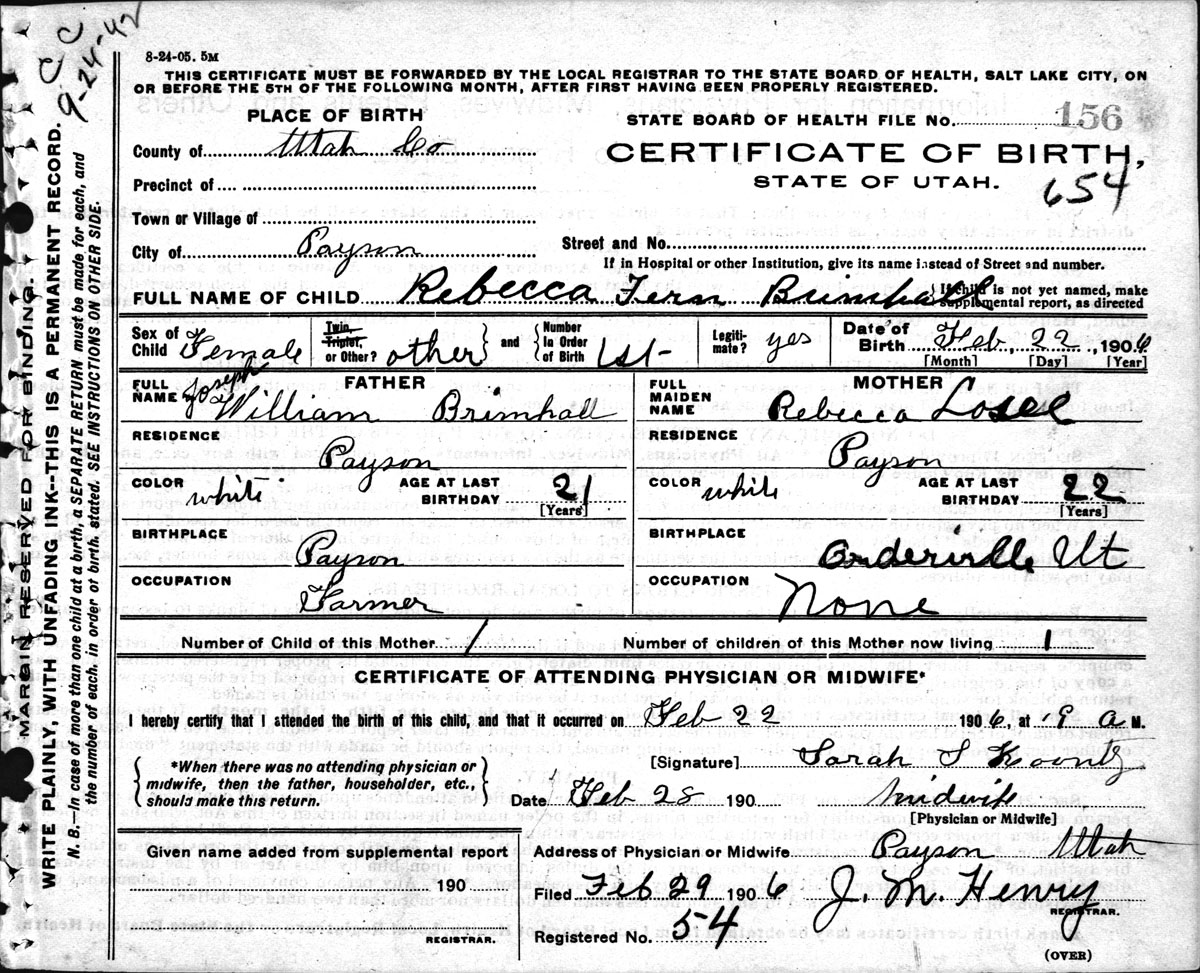 C C
9-24-42
8-24-05. 5M
THIS CERTIFICATE MUST BE FORWARDED BY THE LOCAL REGISTRAR TO THE STATE BOARD OF HEALTH, SALT LAKE CITY, ON
OR BEFORE THE 5TH OF THE FOLLOWING MONTH, AFTER FIRST HAVING BEEN PROPERLY REGISTERED.
MARGIN RESERVED FOR BINDING.
WRITE PLAINLY, WITH UNFADING INK--THIS IS A PERMANENT RECORD.
N. B.—In case of more than one child at a birth, a SEPARATE RETURN must be made for each, and
the number of each, in order of birth, stated. SEE INSTRUCTIONS ON OTHER SIDE.
PLACE OF BIRTH
STATE BOARD OF HEALTH FILE NO. 156
County of Utah Co
CERTIFICATE OF BIRTH,
Precinct of
STATE OF UTAH.
654
Town or Village of
City of Payson
Street and No.
If in Hospital or other Institution, give its name instead of Street and number.
FULL NAME OF CHILD Rebecca Fern Brimhall
If child is not yet named, make
supplemental report, as directed
Sex of Child Female
Twin, Triplet, or Other? other and Number In Order of Birth 1st
Legitimate? yes
Date of Birth Feb, 22, 1906
[Month] [Day] [Year]
FULL NAME FATHER
Joseph William Brimhall
FULL MAIDEN NAME MOTHER
Rebecca Losee
RESIDENCE Payson
RESIDENCE Payson
COLOR white AGE AT LAST BIRTHDAY 21 [Years]
COLOR white AGE AT LAST BIRTHDAY 22 [Years]
BIRTHPLACE Payson
BIRTHPLACE Orderville Ut
OCCUPATION Farmer
OCCUPATION None
Number of Child of this Mother 1
Number of children of this Mother now living 1
CERTIFICATE OF ATTENDING PHYSICIAN OR MIDWIFE*
I hereby certify that I attended the birth of this child, and that it occurred on Feb 22 1906, at A M.
*When there was no attending physician or
midwife, then the father, householder, etc.,
should make this return.
[Signature] Sarah S Koontz
Date Feb 28 190 Midwife
[Physician or Midwife]
Given name added from supplemental report
190
REGISTRAR.
Address of Physician or Midwife Payson Utah
Filed Feb 29 1906 J. M. Henry
REGISTRAR.
Registered No. 54
(OVER)